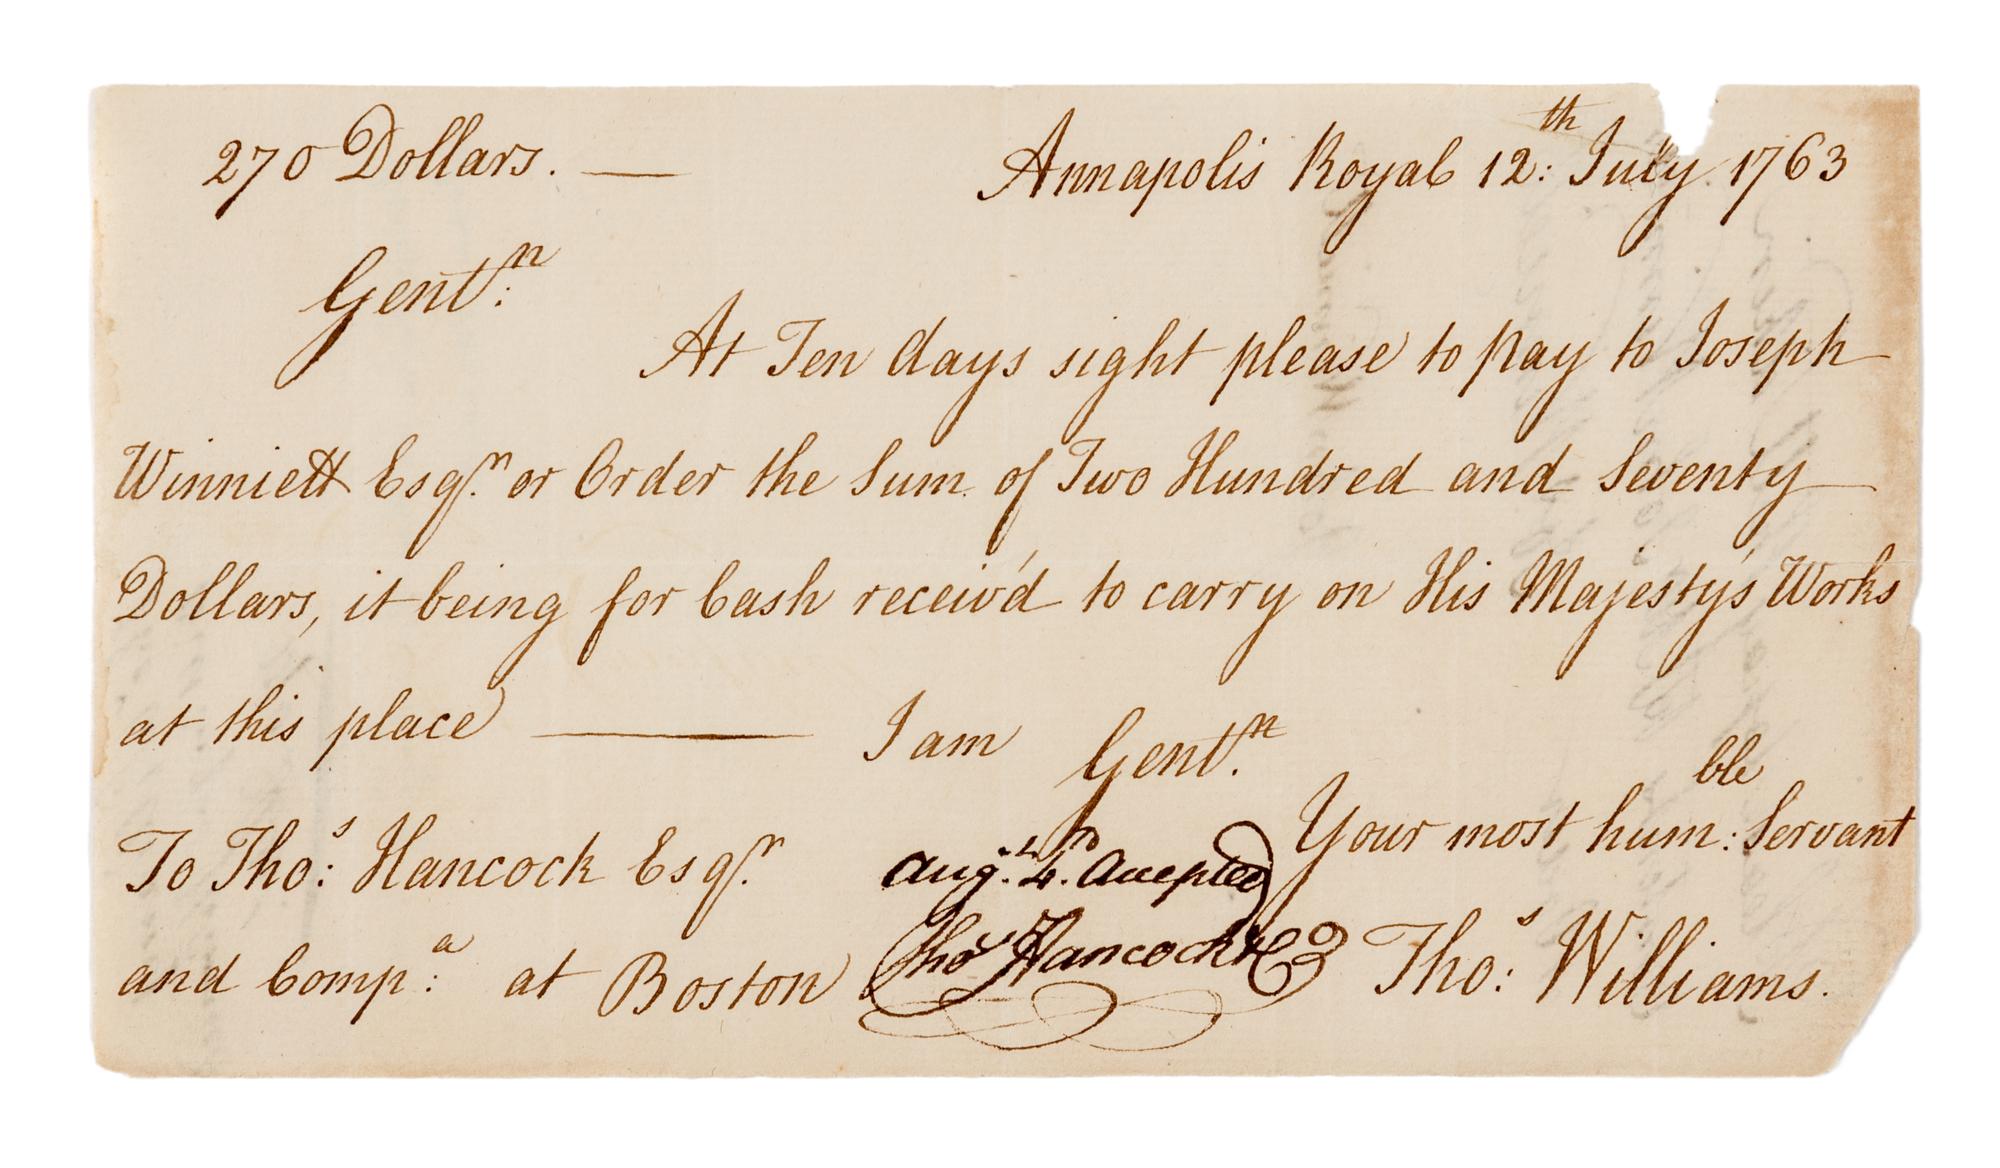 270 Dollars. — Annapolis Royal 12:th July 1763
Gent:n
At Ten days sight please to pay to Joseph
Winniett Esqr. or Order the Sum of Two Hundred and Seventy
Dollars, it being for Cash receiv'd to carry on His Majesty's Works
at this place — I am Gent.n
Your most hum:ble Servant
To Tho:s Hancock Esqr.
and Comp:a at Boston
Augt. 4th. Accepted
Thos Hancock & Co
Tho:s Williams.